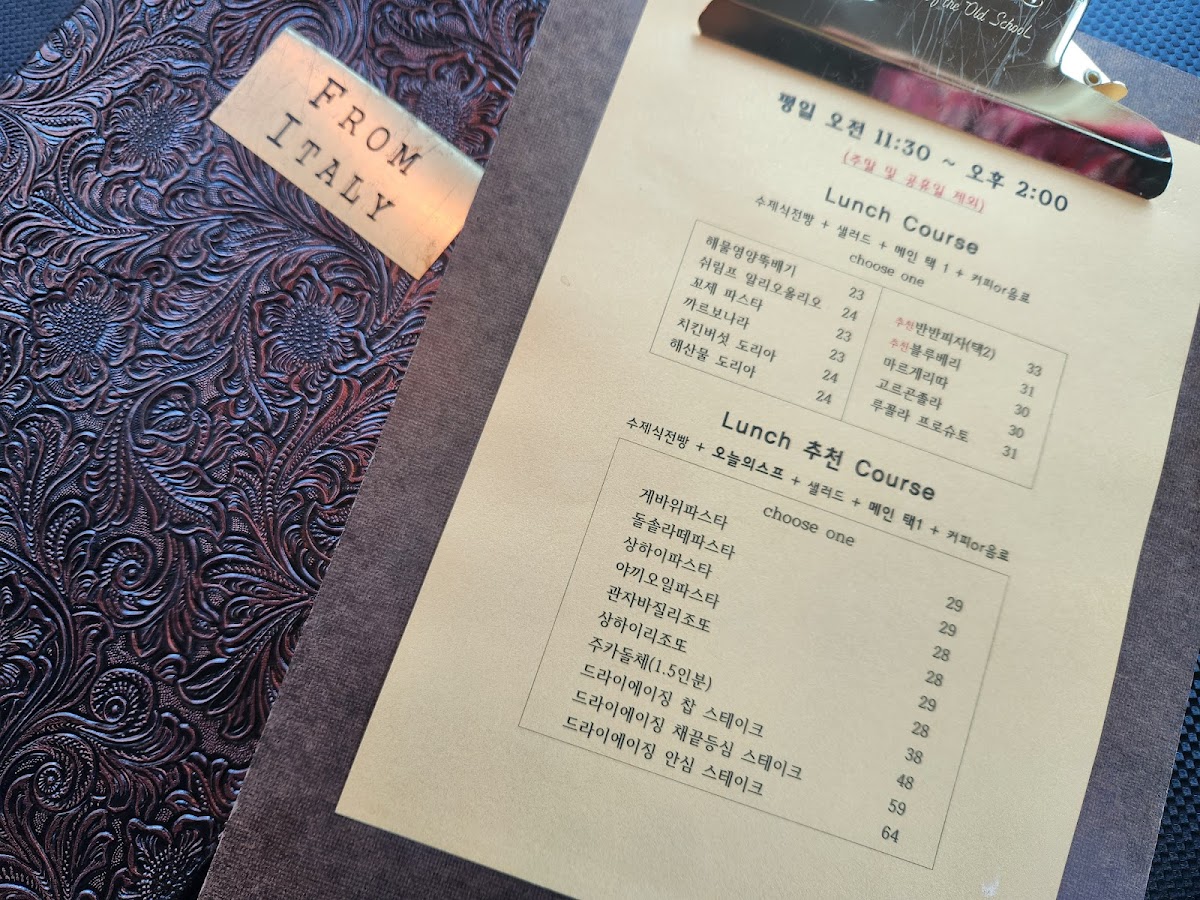 FROM
ITALY
of the Old School
평일 오전 11:30 ~ 오후 2:00
(주말 및 공휴일 제외)
Lunch Course
수제식전빵 + 샐러드 + 메인 택 1 + 커피or음료
choose one
해물영양뚝배기 23
쉬림프 알리오올리오 24
꼬제 파스타 23
까르보나라 23
치킨버섯 도리아 24
해산물 도리아 24
추천반반피자(택2) 33
추천블루베리 31
마르게리따 30
고르곤졸라 30
루꼴라 프로슈토 31
Lunch 추천 Course
수제식전빵 + 오늘의스프 + 샐러드 + 메인 택1 + 커피or음료
choose one
게바위파스타 29
돌솥라떼파스타 29
상하이파스타 28
야끼오일파스타 28
관자바질리조또 29
상하이리조또 28
주카돌체(1.5인분) 38
드라이에이징 찹 스테이크 48
드라이에이징 채끝등심 스테이크 59
드라이에이징 안심 스테이크 64